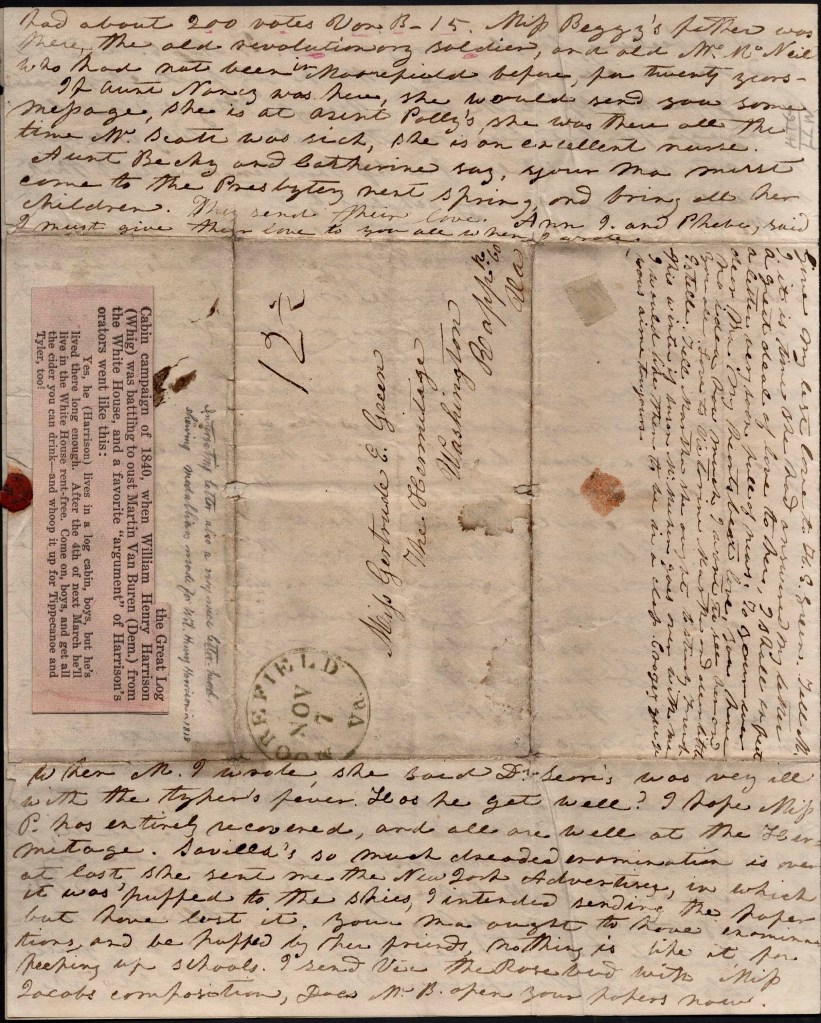 had about 200 votes Van B-15. Miss Peggy's father was
there, the old revolutionary soldier, and old Mr. McNeil
who had not been in Moorefield before, for twenty years-
If Aunt Nancy was here, she would send you some
message, she is at aunt Polly's, she was there all the
time Mr. Scott was sick, she is an excellent nurse.
Aunt Becky and Catherine say, your Ma must
come to the Presbytery next spring, and bring all her
children. They send their love. Ann J. and Phebe, said
I must give their love to you all when I wrote.
Give my best love to M. E. Green. Tell M.
J. it is time she had answered my letter
a great deal of love to her, I shall expect
a letter very soon full of news. To your ever
dear Ma. my heart's best love, you have
no idea how much I want to see her on
you all. Love to Victorine Martha and dear little
Estelle. Tell Martha she ought to study French
this winter, if
I would like them to be in a class.
vous aime toujours
12½
Miss Gertrude E. Green
The Hermitage
Washington
Rapp.k Co
Va
MOOREFIELD VA
NOV
7
Interesting letter also a very nice letter head
showing medallion made for Wm. Henry Harrison in 1838
the Great Log
Cabin campaign of 1840, when William Henry Harrison
(Whig) was battling to oust Martin Van Buren (Dem.) from
the White House, and a favorite "argument" of Harrison's
orators went like this:
Yes, he (Harrison) lives in a log cabin, boys, but he's
lived there long enough. After the 4th of next March he'll
live in the White House rent-free. Come on, boys, and get all
the cider you can drink—and whoop it up for Tippecanoe and
Tyler, too!
When M. J. wrote, she said Dr. was very ill
with the typhus fever. Has he get well? I hope Miss
P. has entirely recovered, and all are well at the Her-
mitage. Savilla's so much dreaded examination is over
at last she sent me the New York Advertiser, in which
it was puffed to the skies, I intended sending the paper
but have lost it. Your Ma ought to have examina
tions, and be puffed by her friends, nothing is like it for
keeping up schools. I send Vic the Rose bud with Miss
Jacobs composition, Does Mr. B. open your papers now.